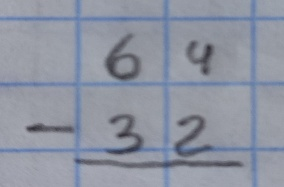 64
-32